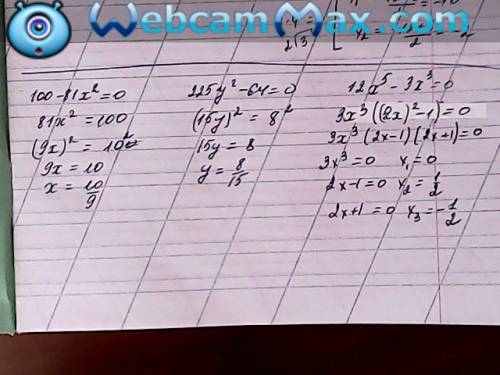 WebcamMax.com
2√3
x₂
2
100-81x²=0
81x²=100
(9x)²=10²
9x=10
x=10/9
225y²-64=0
(15y)²=8²
15y=8
y=8/15
12x⁵-3x³=0
3x³((2x)²-1)=0
3x³(2x-1)(2x+1)=0
3x³=0 x₁=0
2x-1=0 x₂=1/2
2x+1=0 x₃=-1/2